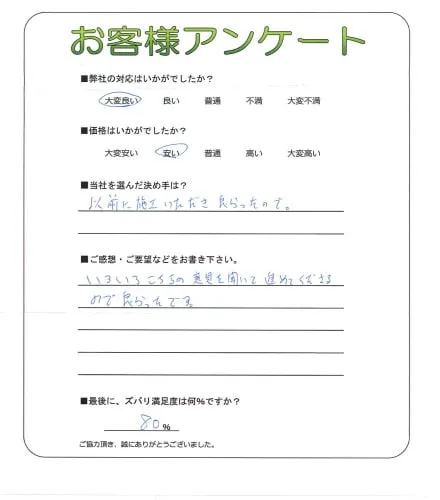 お客様アンケート
■弊社の対応はいかがでしたか？
大変良い 良い 普通 不満 大変不満
■価格はいかがでしたか？
大変安い 安い 普通 高い 大変高い
■当社を選んだ決め手は？
以前に施工いただき良らったので。
■ご感想・ご要望などをお書き下さい。
いろいろこちらの意見を聞いて進めてくださる
ので良らったです。
■最後に、ズバリ満足度は何%ですか？
80%
ご協力頂き、誠にありがとうございました。